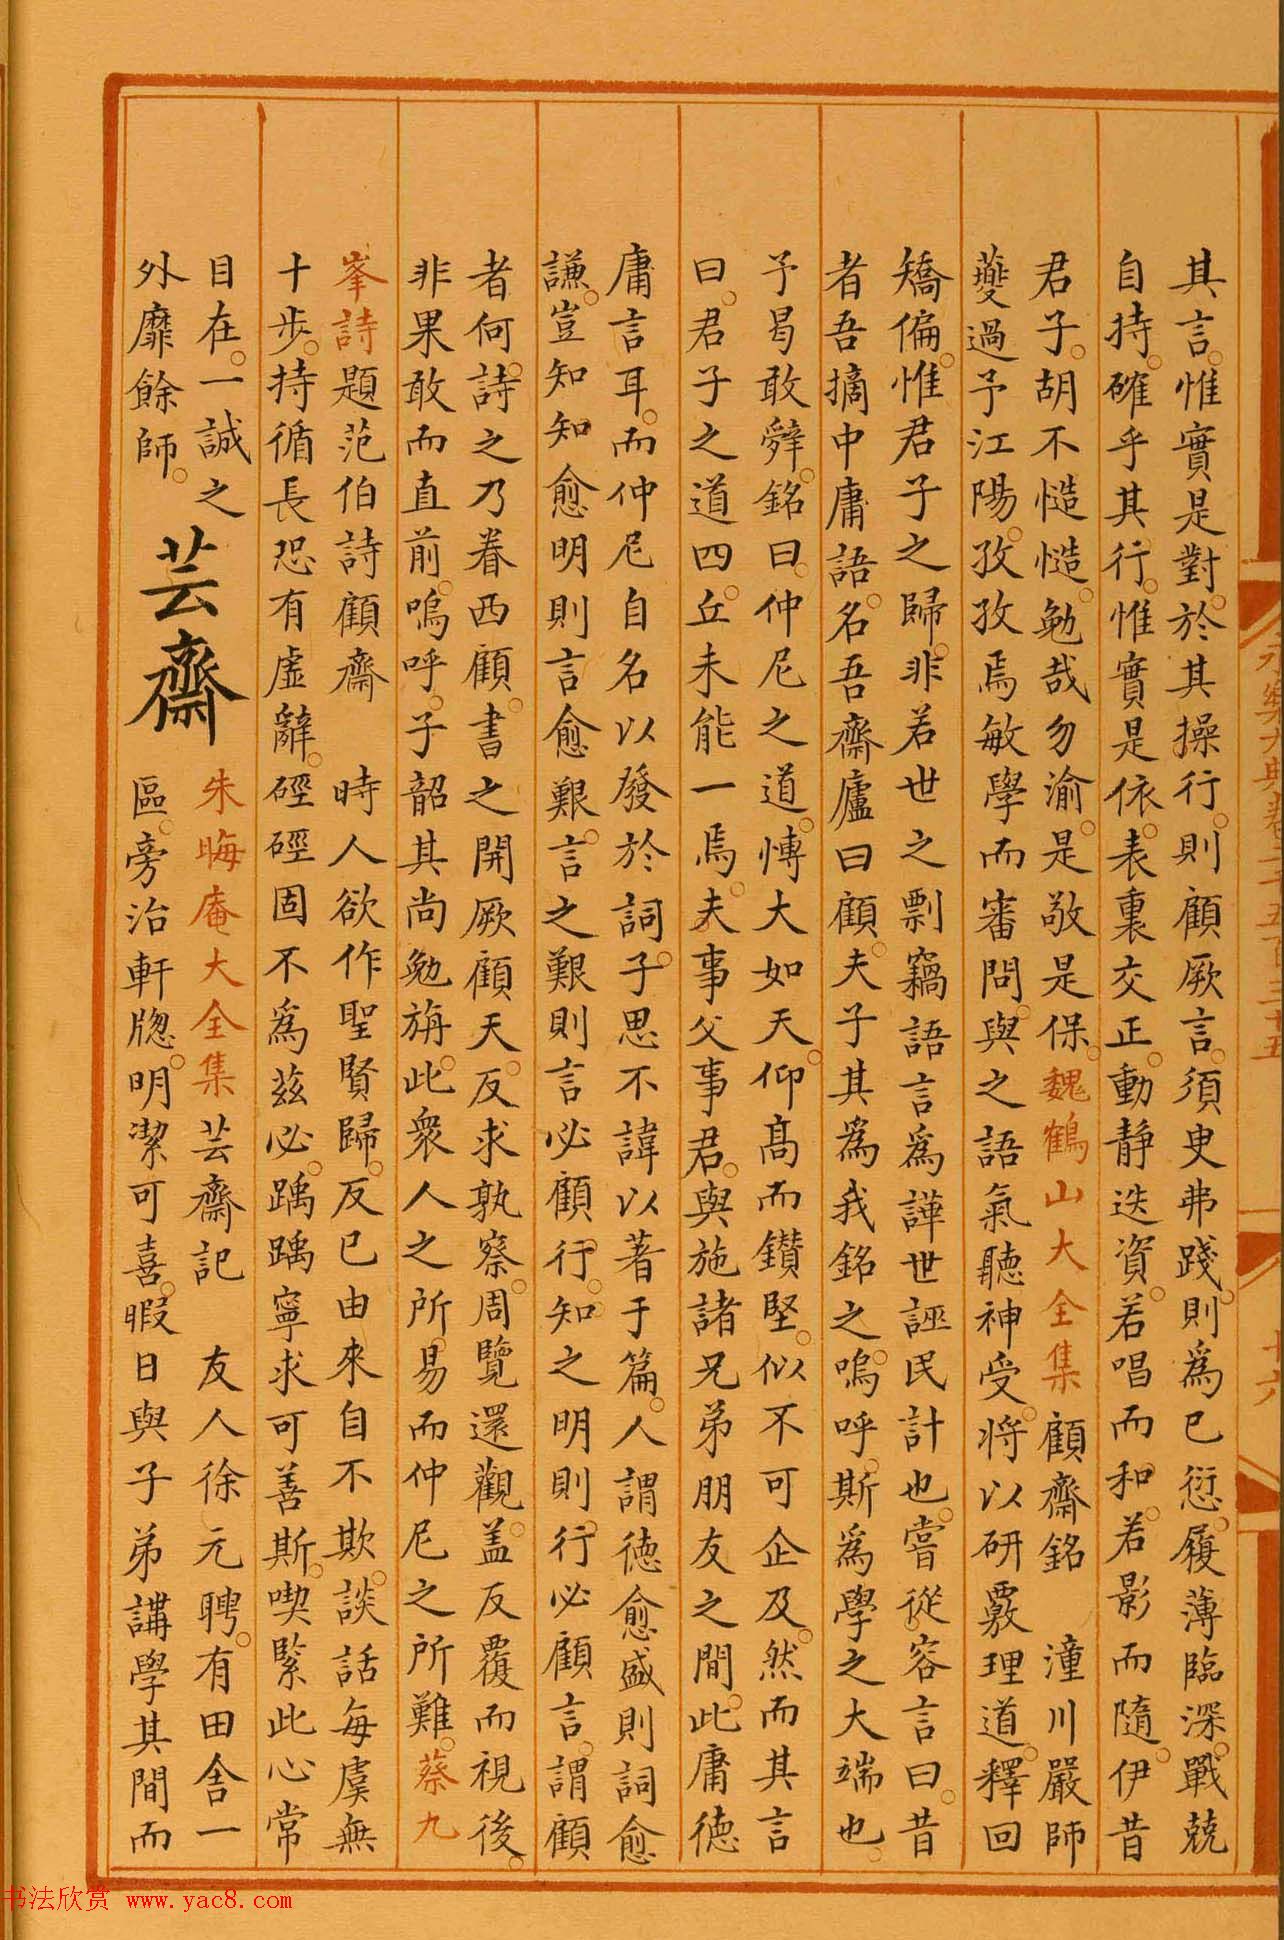 其言惟實是對於其操行則顧厥言須臾弗踐則為已愆履薄臨深戰兢
自持確乎其行惟實是依表裏交正動靜迭資若唱而和若影而隨伊昔
君子胡不慥慥勉哉勿渝是敬是保魏鶴山大全集 顧齋銘 潼川嚴師
夔過予江陽孜孜焉敏學而審問與之語氣聽神受將以研覈理道釋回
矯偏惟君子之歸非若世之剽竊語言為譁世誣民計也嘗從容言曰昔
者吾摘中庸語名吾齋廬曰顧夫子其為我銘之嗚呼斯為學之大端也
予曷敢辤銘曰仲尼之道慱大如天仰高而鑚堅似不可企及然而其言
曰君子之道四丘未能一焉夫事父事君與施諸兄弟朋友之間此庸德
庸言耳而仲尼自名以發於詞子思不諱以著于篇人謂德愈盛則詞愈
謙豈知知愈明則言愈艱言之艱則言必顧行知之明則行必顧言謂顧
者何詩之乃眷西顧書之開厥顧天反求孰察周覽還觀盖反覆而視後
非果敢而直前嗚呼子韶其尚勉旃此衆人之所易而仲尼之所難蔡九
峯詩題范伯詩顧齋 時人欲作聖賢歸反已由來自不欺談話每虞無
十步持循長恐有虛辭硜硜固不為茲必踽踽寧求可善斯喫緊此心常
目在一誠之外靡餘師
芸齋
朱晦庵大全集芸齋記 友人徐元聘有田舍一
區旁治軒牕明潔可喜暇日與子弟講學其間而
永樂大典卷二千五百三十五
十六
书法欣赏 www.yac8.com